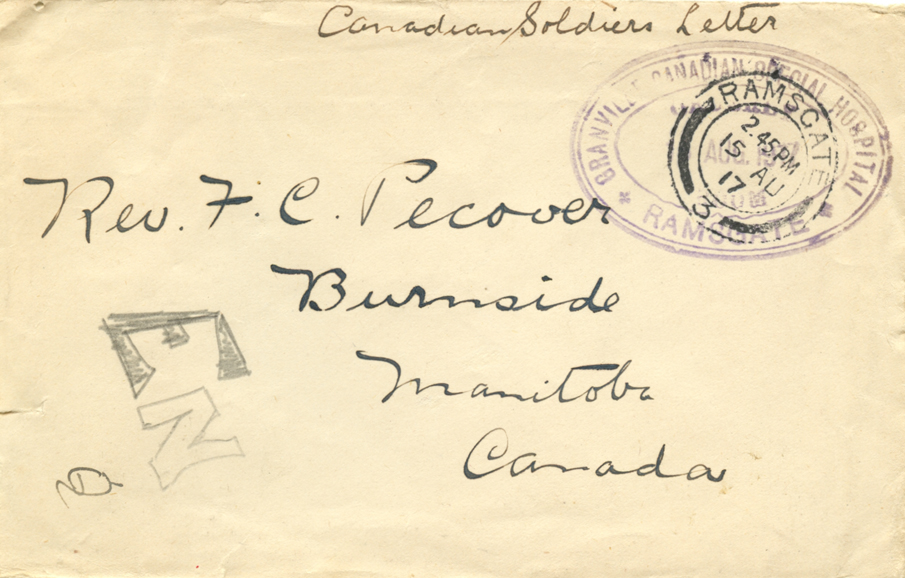 Canadian Soldiers Letter
GRANVILLE CANADIAN SPECIAL HOSPITAL
* RAMSGATE *
AUG. 1917
RAMSGATE
2.45PM
15 AU
17
3
Rev. F. C. Pecover
Burnside
Manitoba
Canada
E
N